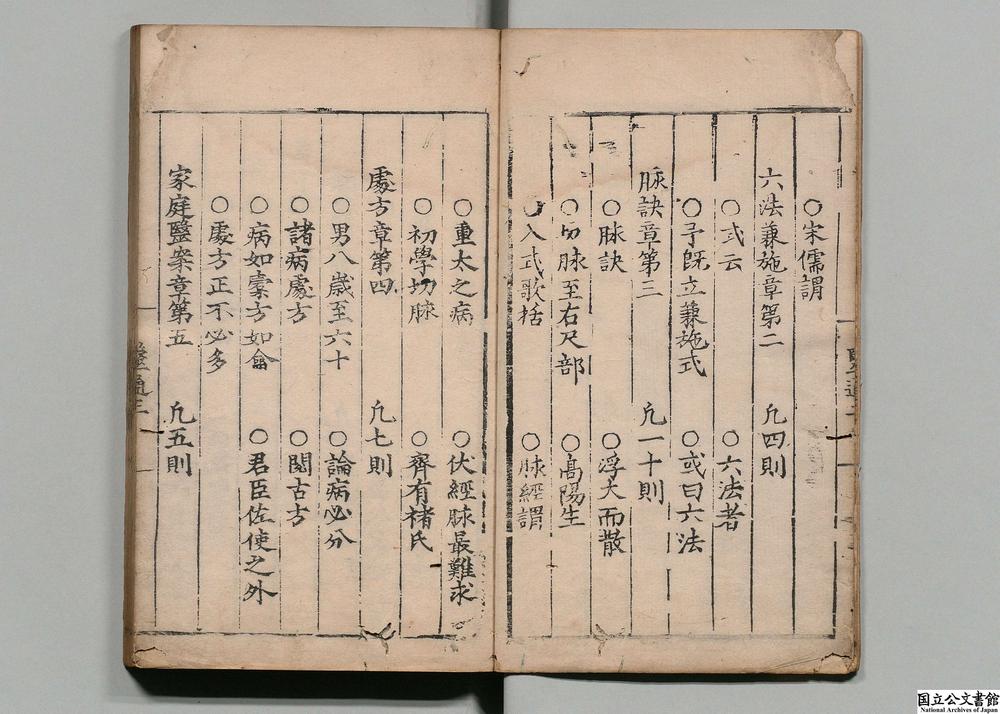 ○宋儒謂
六法兼施章第二 凢四則
○式云 ○六法者
○予旣立兼施式 ○或曰六法
脉訣章第三 凢一十則
○脉訣 ○浮大而散
○切脉至右尺部 ○高陽生
○入式歌括 ○脉經謂
○重太之病 ○伏經脉最難求
○初學切脉 ○齊有褚氏
處方章第四 凢七則
○男八歲至六十 ○論病必分
○諸病處方 ○閱古方
○病如橐方如龠 ○君臣佐使之外
○處方正不必多
家庭毉案章第五 凢五則
國立公文書館
National Archives of Japan